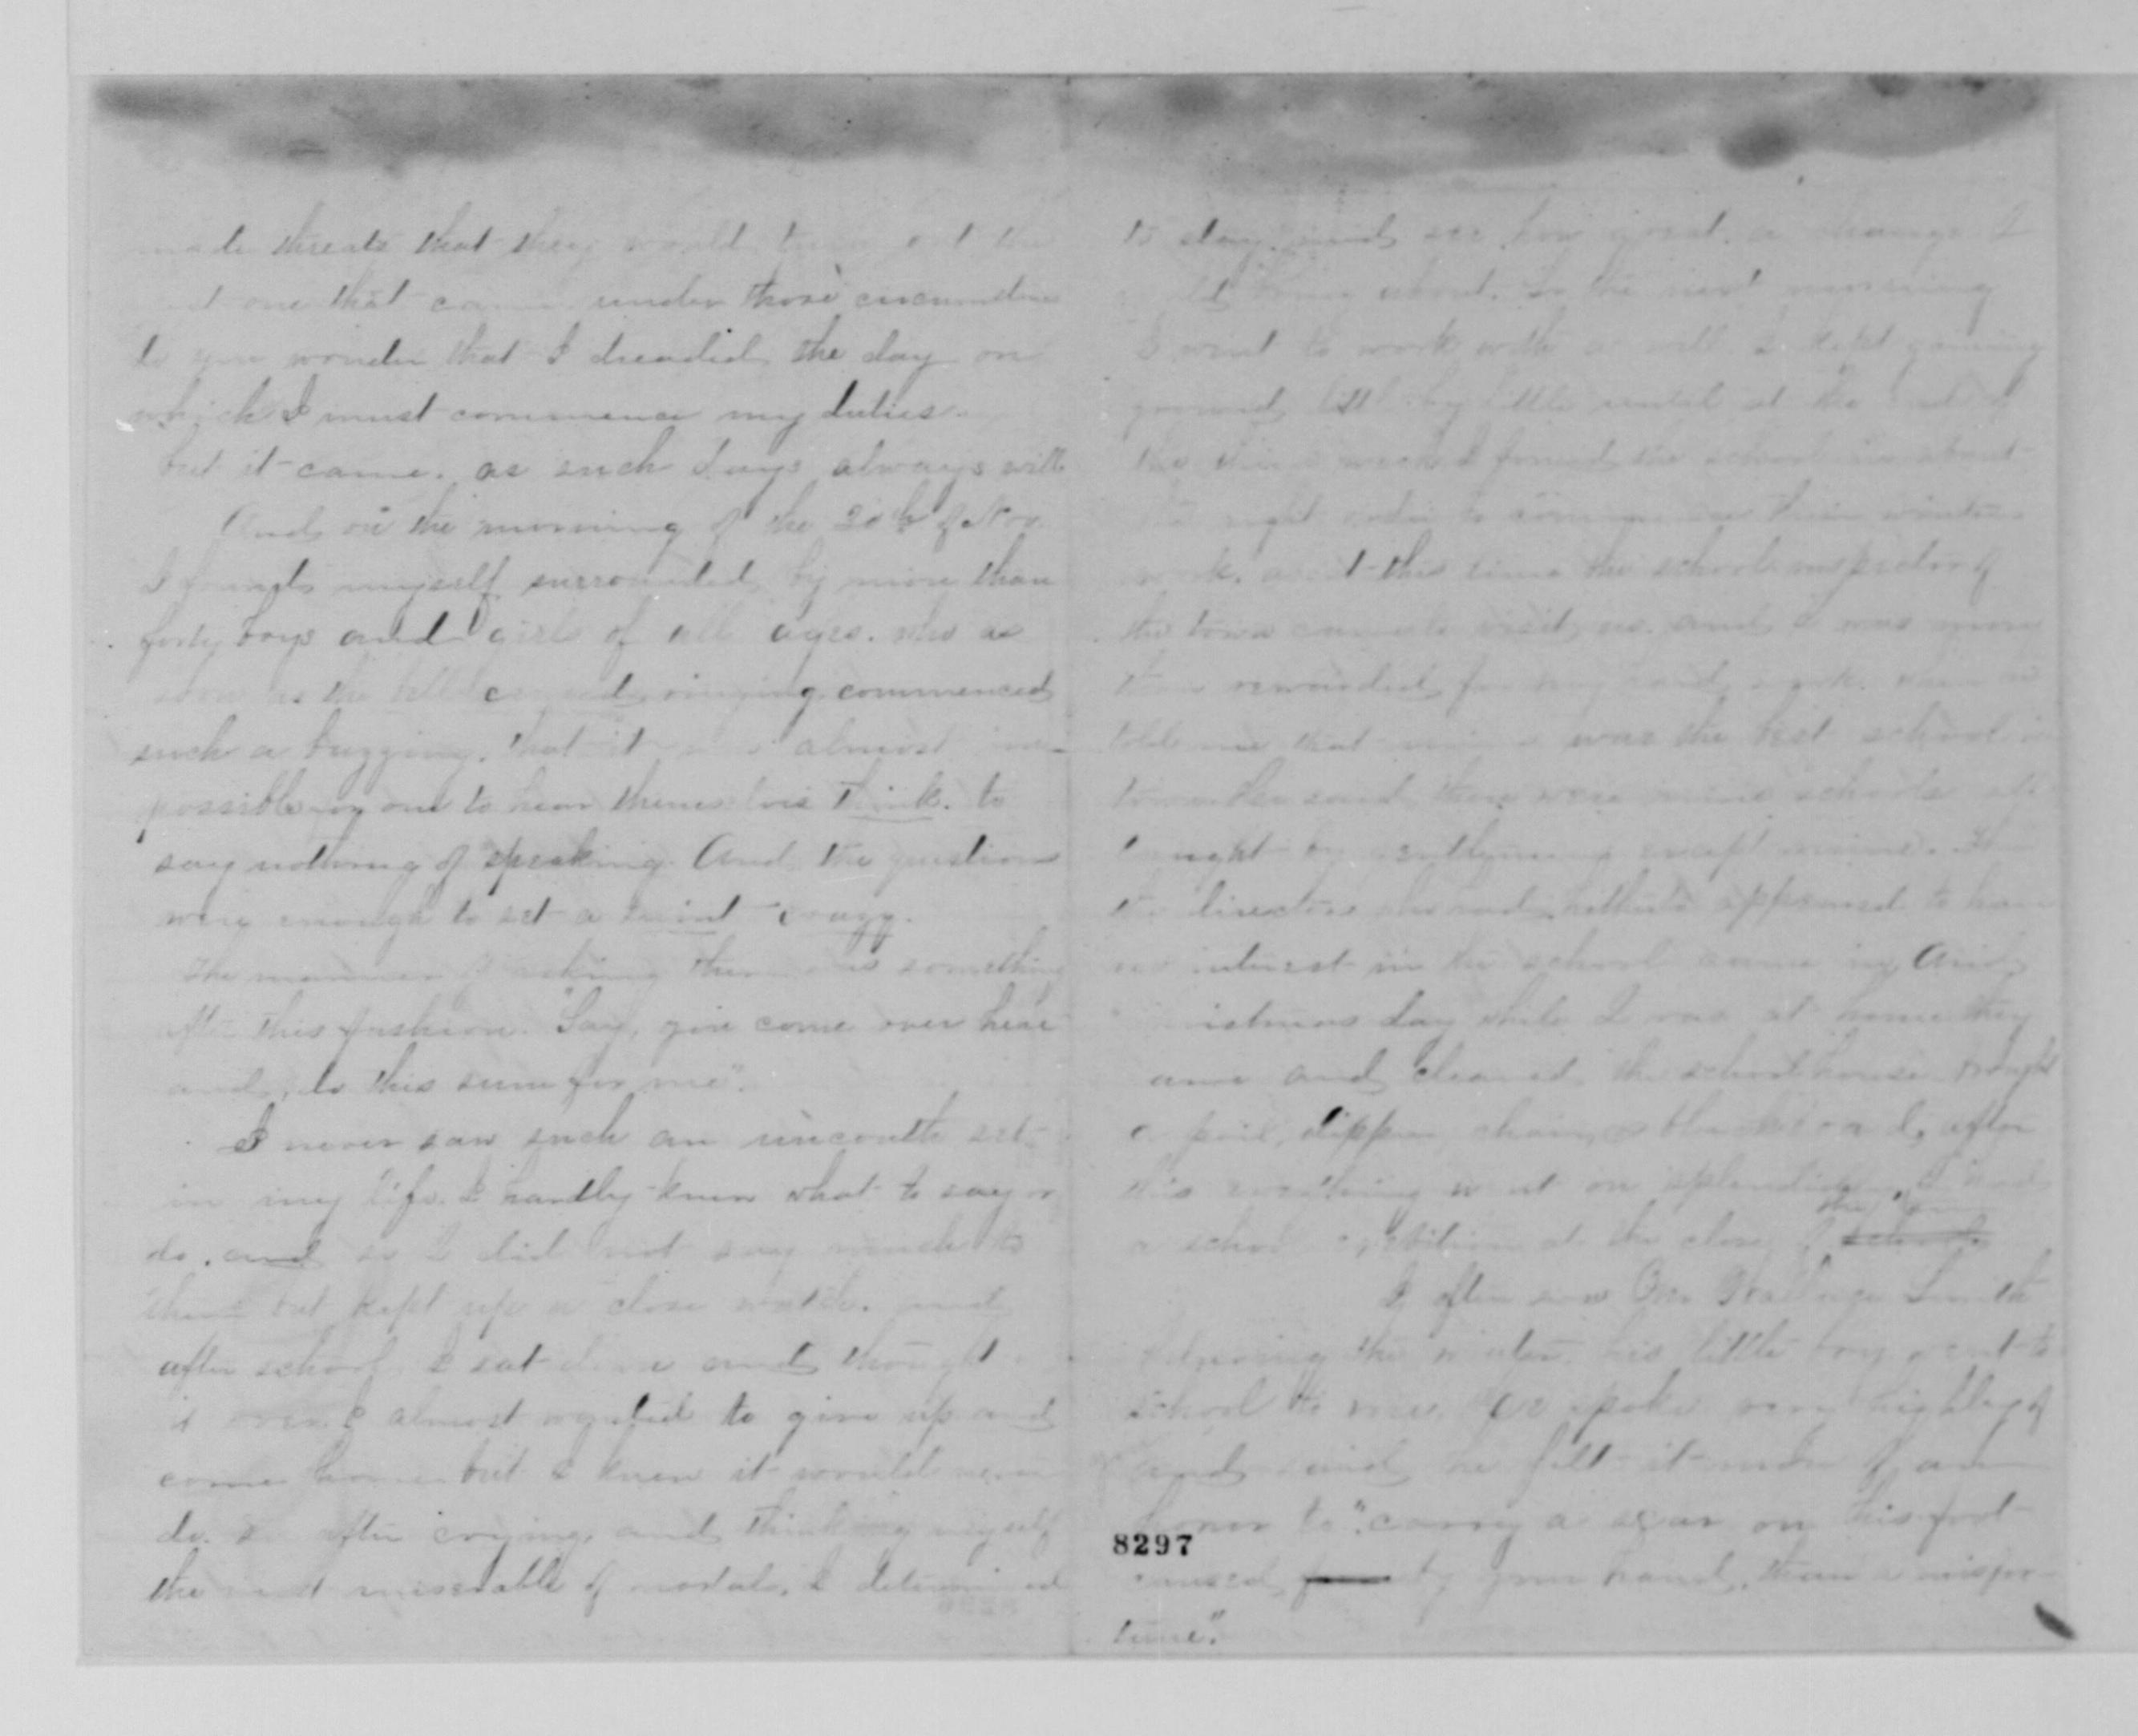 made threats that they would turn out the
one that came under those circumstan
do you wonder that I dreaded the day on
which I must commence my duties.
but it came. as such days always will
And on the morning of the 30th of Nov.
I found myself surrounded by more than
forty boys and girls of all ages. who as
soon as the bell ceased ringing commenced
such a buzzing. that it was almost im-
possible for one to hear themselves think. to
say nothing of speaking. And the questions
were enough to set a saint crazy.
The manner of asking them was something
after this fashion. "Say, you come over here
and do this sum for me".
I never saw such an uncouth set
in my life. I hardly knew what to say or
do. and so I did not say much to
them but kept up a close watch. and
after school I sat down and thought
it over. I almost resolved to give up and
come home but I knew it would never
do. so after crying, and thinking myself
the most miserable of mortals, I determined
to stay and see how great a change I
could bring about. So the next morning
I went to work with a will. I kept gaining
ground, little by little until at the end of
the third week I found the school in about
the right order to commence their winters
work. about this time the school inspector of
the town came to visit us. and I was more
than rewarded for my hard work. when he
told me that mine was the best school in
town. there were nine schools all
taught by gentlemen except mine. Then
the directors who had hitherto appeared to have
no interest in the school came in, And
Christmas day while I was at home they
came and cleaned the school house. brought
a pail, dipper, chair, & blackboard, after
this everything went on splendidly. I had
a school exhibition at the close of the term school.
I often saw Mr. Wallace Smith
during the winter. his little boy went to
school to me. He spoke very highly of
and said he felt it more of an
honor to "carry a scar on his foot
caused from by your hand, than a misfor-
tune".
8297